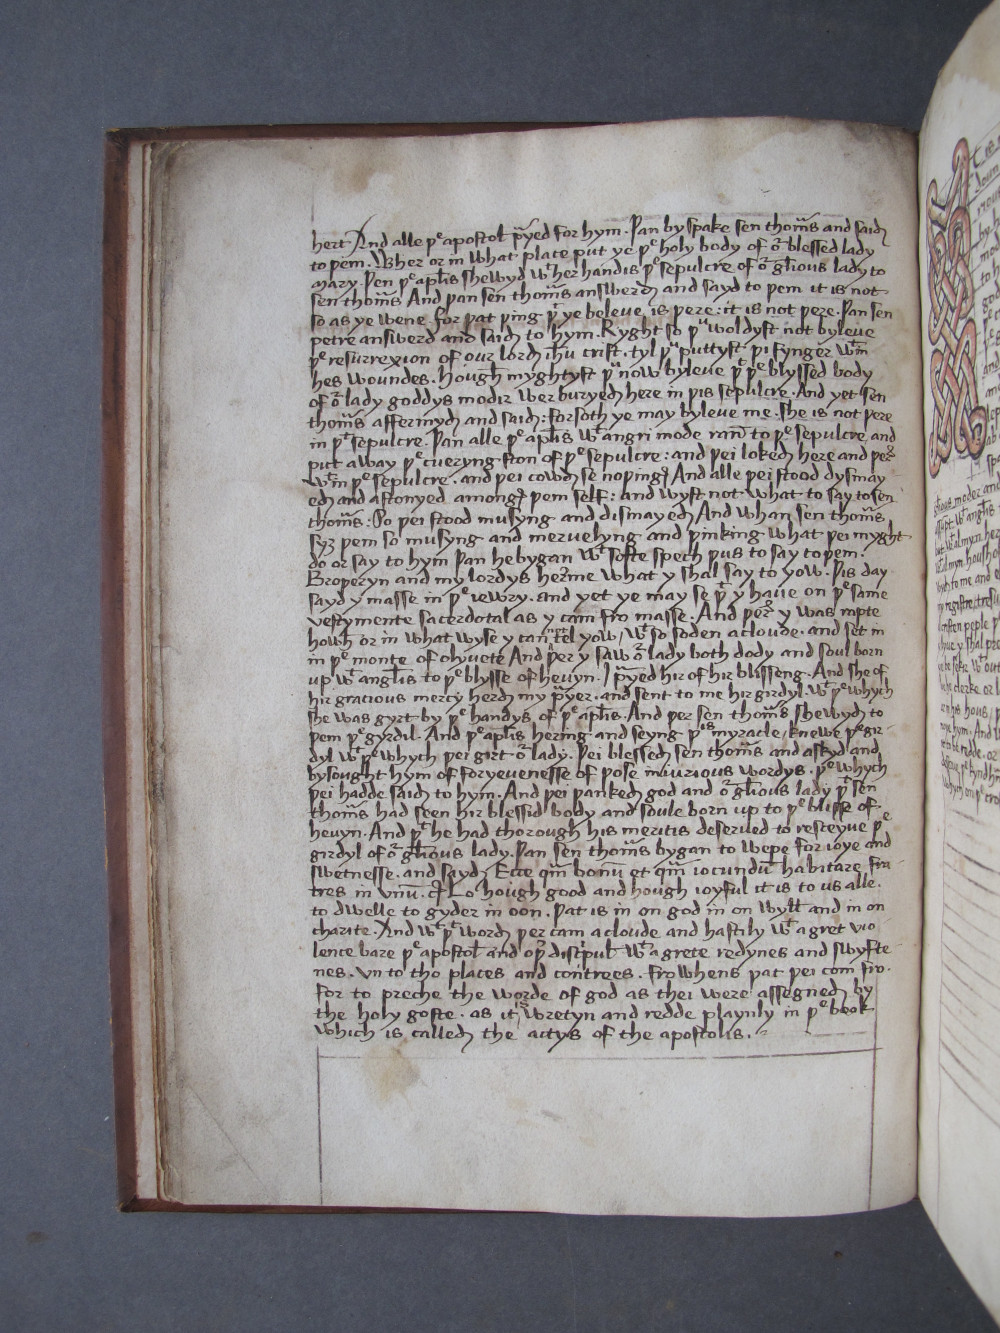 hert And alle þe apostol p̃yed for hym. Þan by spake sen thom̃s and said
to þem. Wher or in what place put ye þe holy body of oꝛ̃ blessed lady
mary. Þen þe apl̃is shewyd wt her handis þe sepulcre of oꝛ̃ gl̃ious lady to
sen thom̃s And þan sen thom̃s answerd and sayd to þem it is not
so as ye wene. for þat þing þt ye beleue is þere : it is not þere. Þan sen
petre answerd and said to hym. Ryght so þu woldyst not byleue
þe resurrexion of our lord ih̃u crist. tyl þu puttyst þi fynger wtin
hes woundes. hough myghtyst þu now byleue þt þe blyssed body
of oꝛ̃ lady goddys modir wer buryed here in þis sepulcre. And yet sen
thom̃s affermyd and said: forsoth ye may byleue me. she is not þere
in þt sepulcre. Þan alle þe apl̃is wt angri mode ran̄ to þe sepulcre and
put a way þe cueryng ston of þe sepulcre : and þei loked here and þer̃
wtin þe sepulcre. and þei cowd se noþing And alle þei stood dysmay
ed and astonyed among þem self : and wyst not what to say to sen
thom̃s : So þei stood musyng and dismayed And whan sen thom̃s
syȝ þem so musyng and meruelyng and þinking what þei myght
do or say to hym þan he bygan wt softe spech þus to say to þem.
Broþeryn and my lordys her̃ me what y shal say to yow. Þis day
sayd y masse in þe iewry. and yet ye may se þt y haue on þe same
vestymente sacerdotal as y cam fro masse. And þer̃ y was rapte
howh or in what wyse y can not tel yow / wt so soden a cloude. and set in
in þe monte of olyuete And þer y saw oꝛ̃ lady both body and soul born
up wt angl̃is to þe blysse of heuyn. I p̃yed hir of hir blisseng. And she of
hir gracious mercy herd my p̃yer. and sent to me hir gyrdyl. wt þe whych
she was gyrt by þe handys of þe apl̃is. And þer sen thom̃s shewyd to
þem þe gyrdil. And þe apl̃is hering and seyng þis myracle / knowe þe gir-
dyl wt þe whych þei girt oꝛ̃ lady. Þei blessed sen thom̃s and askyd and
bysought hym of foryeuenesse of þose iniurious wordys. þe whych
þei hadde said to hym. And þei þanked god and oꝛ̃ gl̃ious lady þt sen
thom̃s had seen hir blessid body and soule born up to þe blisse of
heuyn. And þt he had thorough his meritis deserued to resteyue þe
girdyl of oꝛ̃ gl̃ious lady. Þan sen thom̃s bygan to wepe for ioye and
swetnesse. and sayd / Ecce qm̃ bonū et qm̃ iocundū habitare fra-
tres in vnū. ¶ Lo hough good and hough ioyful it is to us alle.
to dwelle to gyder in oon. Þat is in on god in on wyll and in on
charite. And wt þt word þer cam a cloude and hastily wt a gret vio
lence bare þe apostol and oþ̃ discipul̃ wt a grete redynes and swyfte-
nes. vn to tho places and contrees. fro whens þat þei com fro.
for to preche the worde of god as thei were assegned by
the holy goste. as it is wretyn and redde playnly in þe book
which is called the actys of the apostolis.